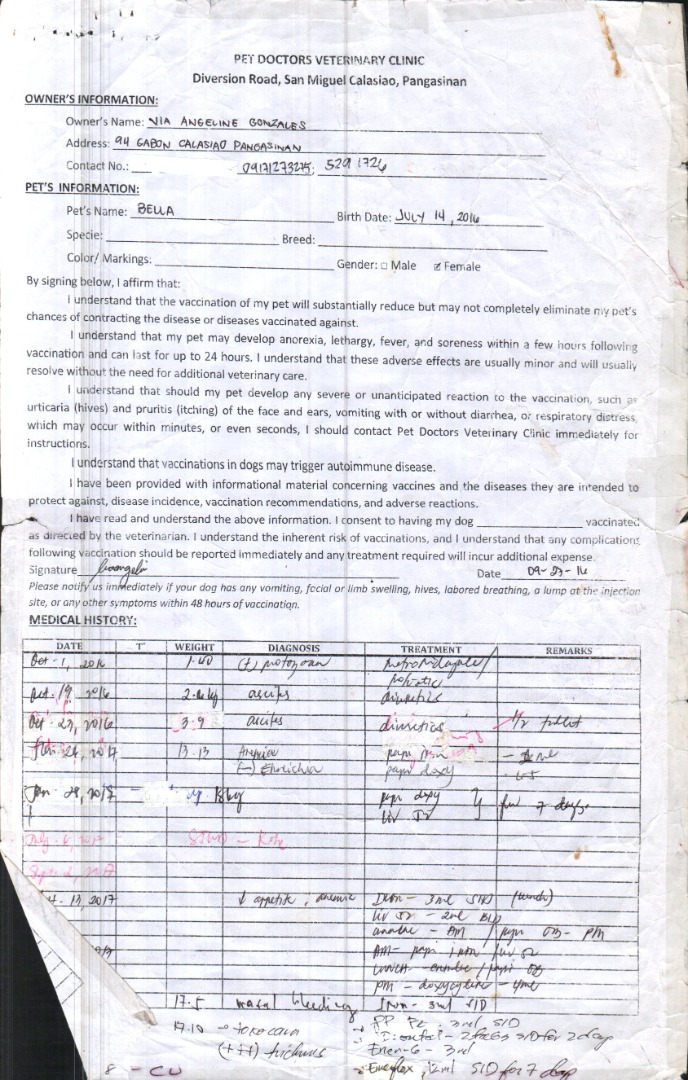 PET DOCTORS VETERINARY CLINIC
Diversion Road, San Miguel Calasiao, Pangasinan
OWNER'S INFORMATION:
Owner's Name: VIA ANGELINE GONZALES
Address: 94 GABON CALASIAO PANGASINAN
Contact No.: 09171273275; 529 1726
PET'S INFORMATION:
Pet's Name: BELLA Birth Date: JULY 14, 2016
Specie: Breed:
Color/ Markings: Gender: □ Male ☑ Female
By signing below, I affirm that:
I understand that the vaccination of my pet will substantially reduce but may not completely eliminate my pet's
chances of contracting the disease or diseases vaccinated against.
I understand that my pet may develop anorexia, lethargy, fever, and soreness within a few hours following
vaccination and can last for up to 24 hours. I understand that these adverse effects are usually minor and will usually
resolve without the need for additional veterinary care.
I understand that should my pet develop any severe or unanticipated reaction to the vaccination, such as
urticaria (hives) and pruritis (itching) of the face and ears, vomiting with or without diarrhea, or respiratory distress,
which may occur within minutes, or even seconds, I should contact Pet Doctors Veterinary Clinic immediately for
instructions.
I understand that vaccinations in dogs may trigger autoimmune disease.
I have been provided with informational material concerning vaccines and the diseases they are intended to
protect against, disease incidence, vaccination recommendations, and adverse reactions.
I have read and understand the above information. I consent to having my dog vaccinated
as directed by the veterinarian. I understand the inherent risk of vaccinations, and I understand that any complications
following vaccination should be reported immediately and any treatment required will incur additional expense.
Signature Date 09-23-16
Please notify us immediately if your dog has any vomiting, facial or limb swelling, hives, labored breathing, a lump at the injection
site, or any other symptoms within 48 hours of vaccination.
MEDICAL HISTORY:
DATE T° WEIGHT DIAGNOSIS TREATMENT REMARKS
Oct-1, 2016 (+) protozoan
Oct. 19, 2016 ascites diuretics
Oct 23, 2016 3.9 ascites diuretics 1/2 tablet
2017 13.13
(-) Ehrlichia papi doxy
Jan 28, 2017 papi doxy for 7 days
July 6, 2017
Sept 2, 2017
13, 2017 ↓ appetite; anemic Iron - 3ml SID (lunch)
Liv 52 - 2ml BID
- AM / papi OB - PM
AM - papi iron / liv 52
LUNCH / papi OB
PM - doxycycline - 4ml
17.5 nasal bleeding Iron - 3ml SID
17.10 3ml SID
(+++) SID for 2 days
Ener-G - 3ml
8 - CU SID for 7 days